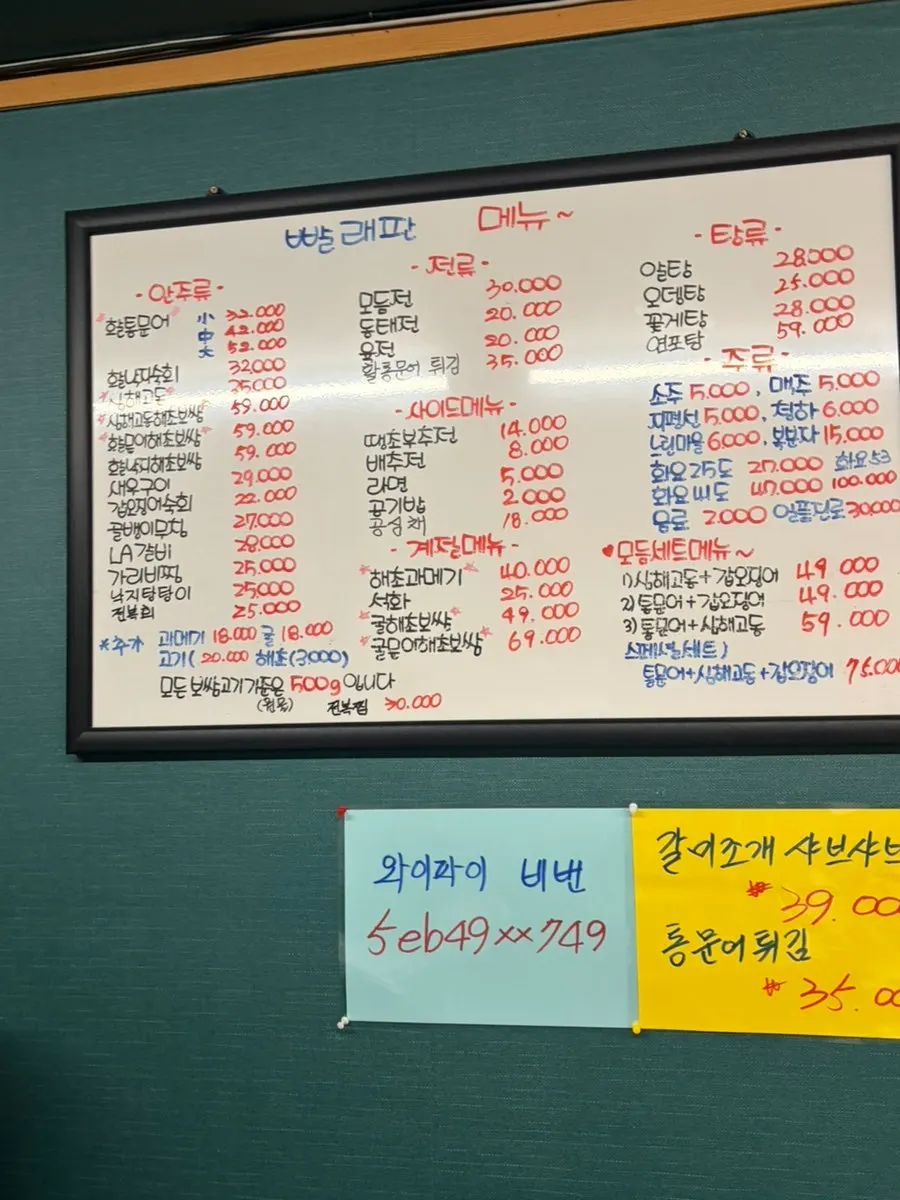 빨래판 메뉴~
- 안주류 -
활통문어 小 32.000
中 42.000
大 52.000
활낙지숙회 32000
심해고동 25.000
심해고동해초보쌈 59.000
활문어해초보쌈 59.000
활낙지해초보쌈 59.000
새우구이 29.000
갑오징어숙회 22.000
골뱅이무침 27.000
LA갈비 28.000
가리비찜 25.000
낙지탕탕이 25,000
전복회 25.000
*추가 과메기 18.000 굴 18.000
고기(20.000 해초(3,000)
모든 보쌈고기 기준은 500g 입니다
전복찜 30.000
- 전류 -
모듬전 30.000
동태전 20.000
육전 20.000
활통문어 튀김 35.000
- 사이드메뉴 -
땡초부추전 14.000
배추전 8.000
라면 5.000
공기밥 2.000
공심채 18.000
- 계절메뉴 -
해초과메기 40.000
석화 25.000
굴해초보쌈 49.000
굴문어해초보쌈 69.000
- 탕류 -
알탕 28.000
오뎅탕 25.000
꽃게탕 28.000
연포탕 59.000
- 주류 -
소주 5.000, 맥주 5.000
지평선 5.000, 청하 6.000
느린마을 6000, 복분자 15,000
화요25도 27.000 화요53
화요41도 47.000 100.000
음료 2.000 일품진로 30,000
♥모듬세트메뉴~
1)심해고동+갑오징어 49.000
2)통문어+갑오징어 49.000
3)통문어+심해고동 59.000
스페셜세트)
통문어+심해고동+갑오징어 75.000
와이파이 비번
5eb49xx749
갈미조개 샤브샤브
39.000
통문어튀김
35.00